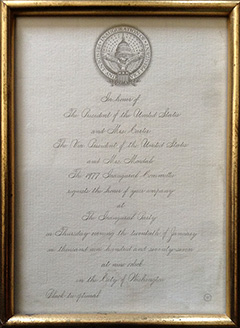 In honor of
The President of the United States
and Mrs. Carter
The Vice President of the United States
and Mrs. Mondale
The 1977 Inaugural Committee
requests the honor of your company
at
The Inaugural Party
on Thursday evening the twentieth of January
one thousand nine hundred and seventy-seven
at nine o'clock
in the City of Washington
Black tie optional